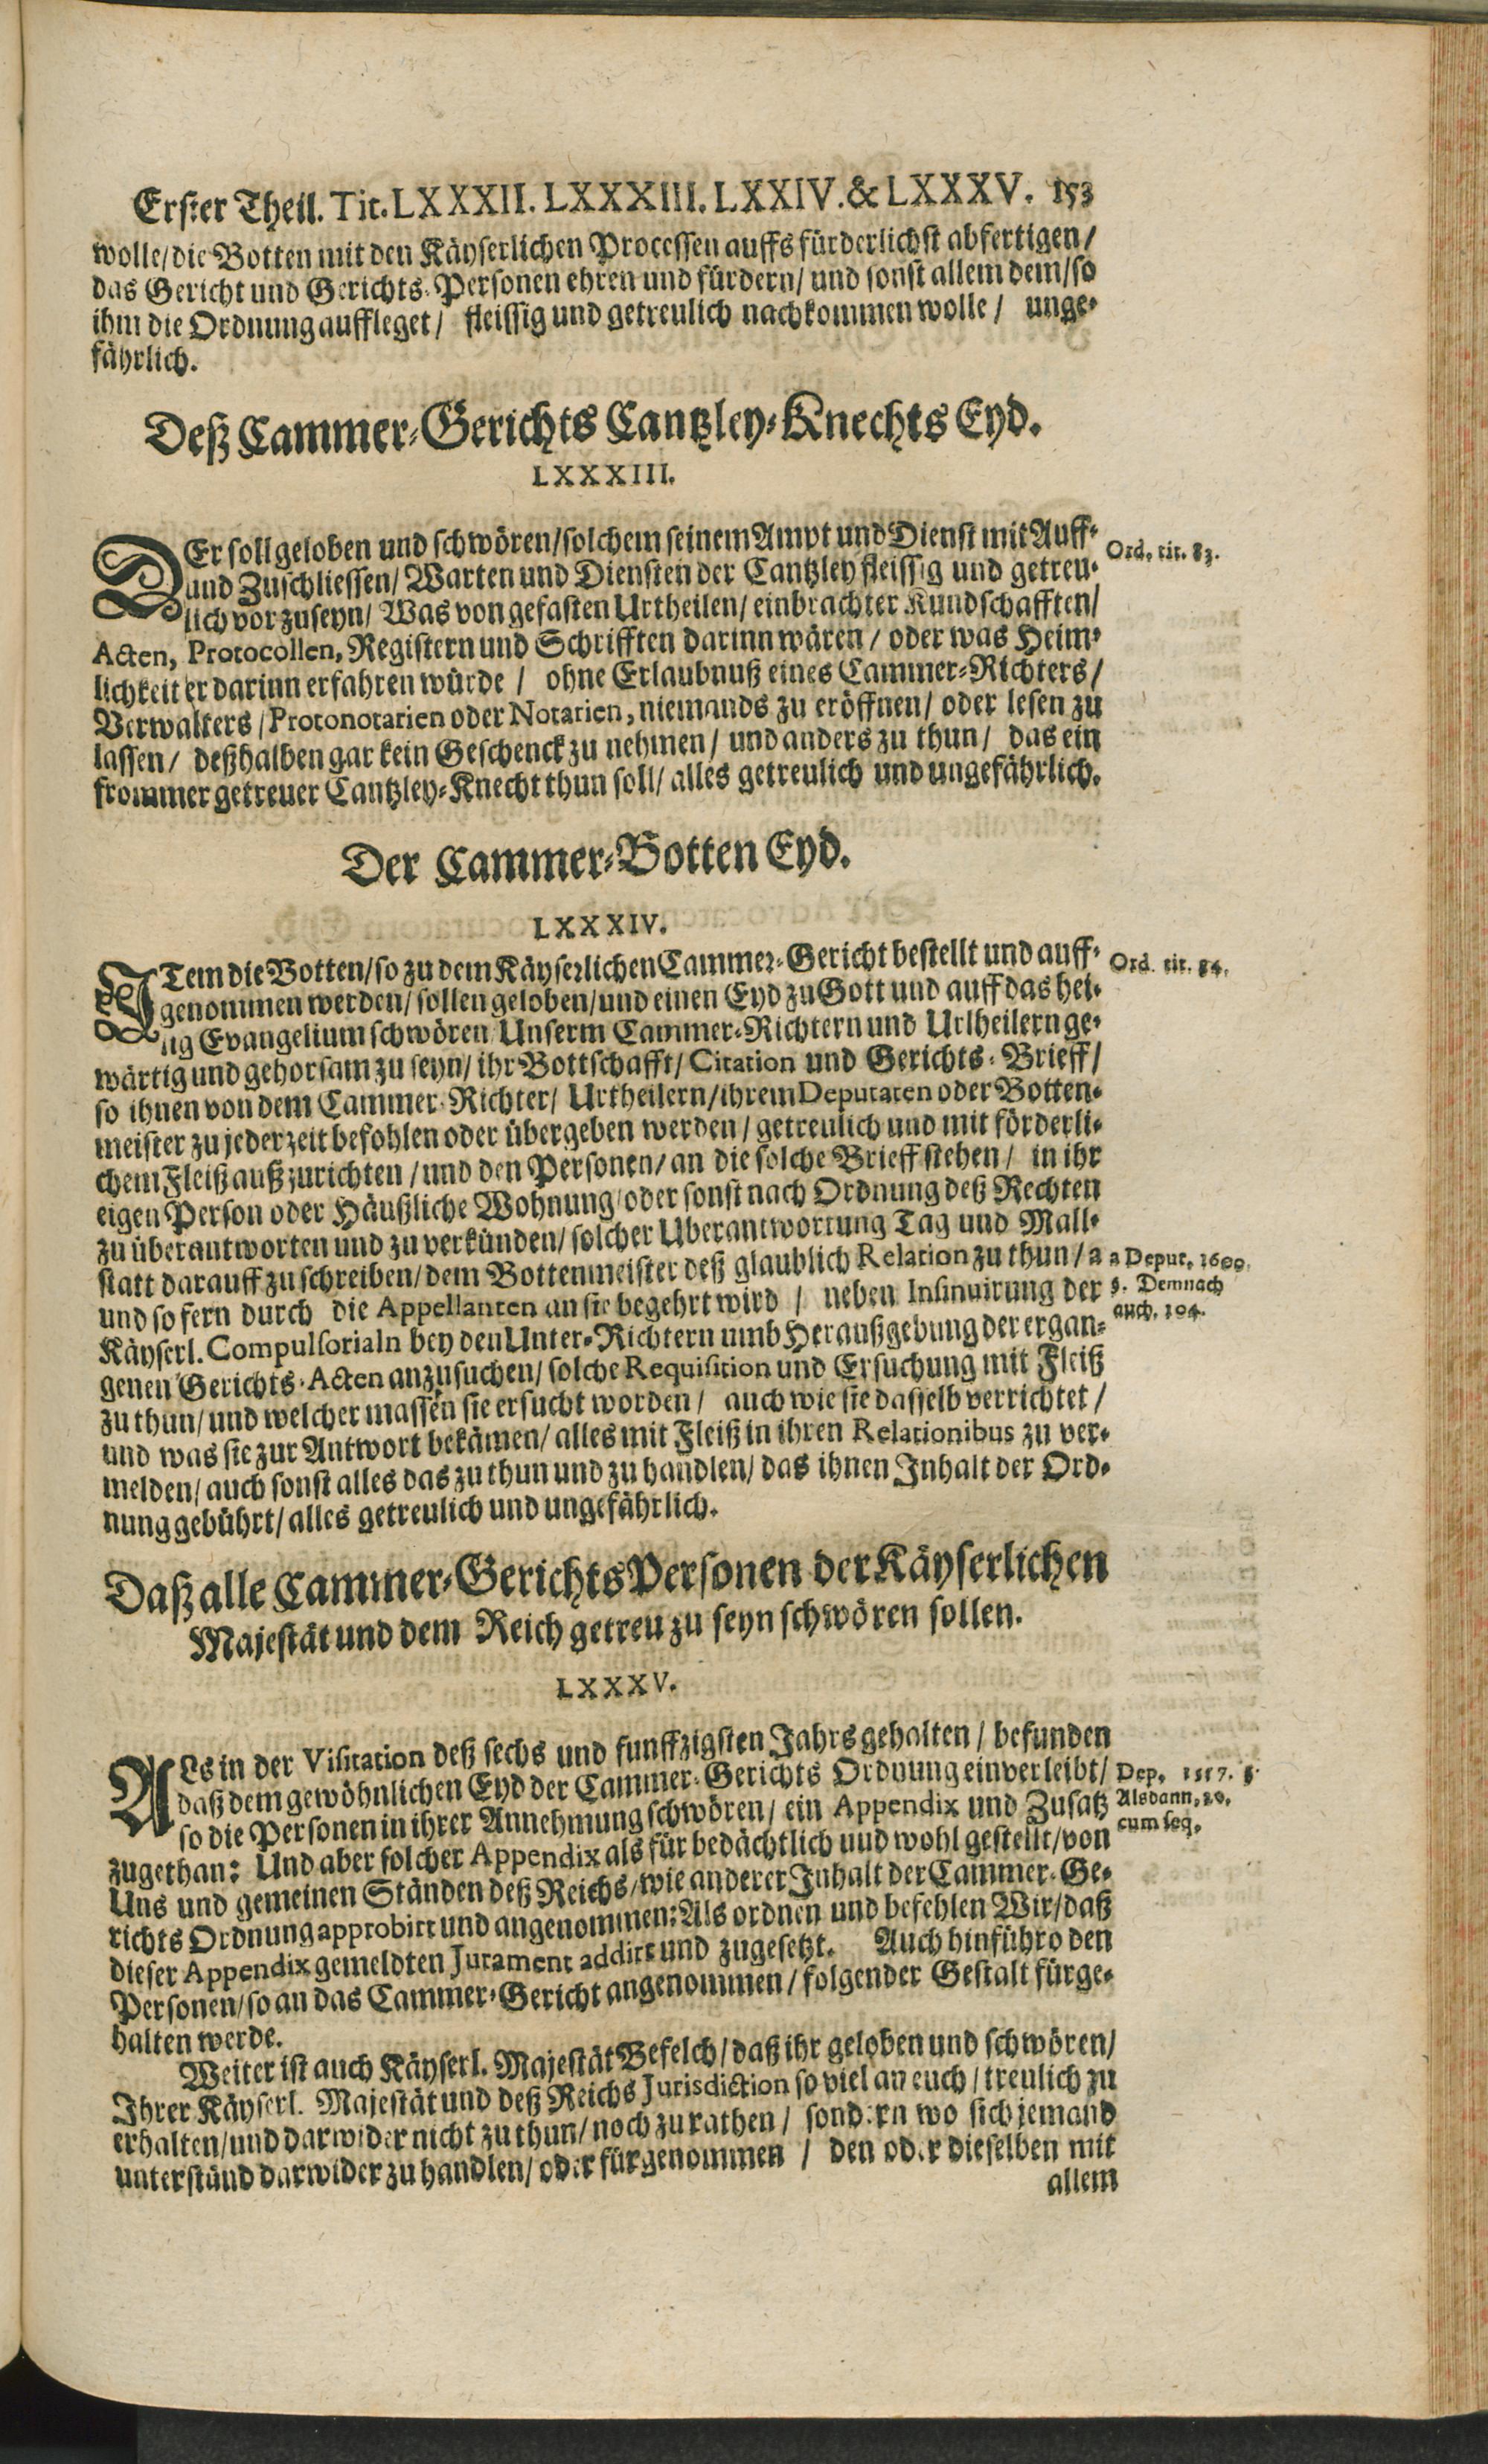 Erster Theil. Tit. LXXXII. LXXXIII. LXXIV. & LXXXV. 153
wolle/die Botten mit den Käyserlichen Processen auffs fürderlichst abfertigen/
das Gericht und Gerichts-Personen ehren und fürdern/ und sonst allem dem/so
ihm die Ordnung auffleget/ fleissig und getreulich nachkommen wolle/ unge-
fährlich.
Deß Cammer-Gerichts Cantzley-Knechts Eyd.
LXXXIII.
DEr soll geloben und schwören/solchem seinem Ampt und Dienst mit Auff-
und Zuschliessen/ Warten und Diensten der Cantzley fleissig und getreu-
lich vor zu seyn/ Was von gefasten Urtheilen/ einbrachter Kundschafften/
Acten, Protocollen, Registern und Schrifften darinn wären/ oder was Heim-
lichkeit er darinn erfahren würde/ ohne Erlaubnuß eines Cammer-Richters/
Verwalters/Protonotarien oder Notarien, niemands zu eröffnen/ oder lesen zu
lassen/ deßhalben gar kein Geschenck zu nehmen/ und anders zu thun/ das ein
frommer getreuer Cantzley-Knecht thun soll/ alles getreulich und ungefährlich.
Ord. tit. 83.
Der Cammer-Botten Eyd.
LXXXIV.
ITem die Botten/so zu dem Käyserlichen Cammer-Gericht bestellt und auff-
genommen werden/ sollen geloben/und einen Eyd zu Gott und auff das hei-
lig Evangelium schwören Unserm Cammer-Richtern und Urlheilern ge-
wärtig und gehorsam zu seyn/ ihr Bottschafft/ Citation und Gerichts-Brieff/
so ihnen von dem Cammer-Richter/ Urtheilern/ihrem Deputaten oder Botten-
meister zu jederzeit befohlen oder übergeben werden/ getreulich und mit förderli-
chem Fleiß außzurichten/und den Personen/ an die solche Brieff stehen/ in ihr
eigen Person oder Häußliche Wohnung/oder sonst nach Ordnung deß Rechten
zu überantworten und zu verkünden/ solcher Uberantwortung Tag und Mall-
statt darauff zu schreiben/dem Bottenmeister deß glaublich Relation zu thun/ a
und so fern durch die Appellanten an sie begehrt wird/ neben Insinuirung der
Käyserl. Compulsorialn bey den Unter-Richtern umb Heraußgebung der ergan-
genen Gerichts-Acten anzusuchen/ solche Requisition und Ersuchung mit Fleiß
zu thun/ und welcher massen sie ersucht worden/ auch wie sie dasselb verrichtet/
und was sie zur Antwort bekämen/ alles mit Fleiß in ihren Relationibus zu ver-
melden/ auch sonst alles das zu thun und zu handlen/ das ihnen Inhalt der Ord-
nung gebührt/ alles getreulich und ungefährlich.
Ord. tit. 84.
a Deput. 1600.
§. Demnach
auch. 104.
Daß alle Cammer-Gerichts Personen der Käyserlichen
Majestät und dem Reich getreu zu seyn schwören sollen.
LXXXV.
ALs in der Visitation deß sechs und funffzigsten Jahrs gehalten/ befunden
daß dem gewöhnlichen Eyd der Cammer-Gerichts Ordnung einverleibt/
so die Personen in ihrer Annehmung schwören/ ein Appendix und Zusatz
zugethan: Und aber solcher Appendix als für bedächtlich und wohl gestellt/von
Uns und gemeinen Ständen deß Reichs/wie anderer Inhalt der Cammer-Ge-
richts Ordnung approbirt und angenommen: Als ordnen und befehlen Wir/daß
dieser Appendix gemeldten Jurament addirt und zugesetzt. Auch hinführo den
Personen/so an das Cammer-Gericht angenommen/folgender Gestalt fürge-
halten werde.
Dep. 1557. §.
Alsdann, 20.
cum seq.
Weiter ist auch Käyserl. Majestät Befelch/daß ihr geloben und schwören/
Ihrer Käyserl. Majestät und deß Reichs Jurisdiction so viel an euch/treulich zu
erhalten/und darwider nicht zu thun/ noch zu rathen/ sondern wo sich jemand
unterstünd darwider zu handlen/ oder fürgenommen/ den oder dieselben mit
allem